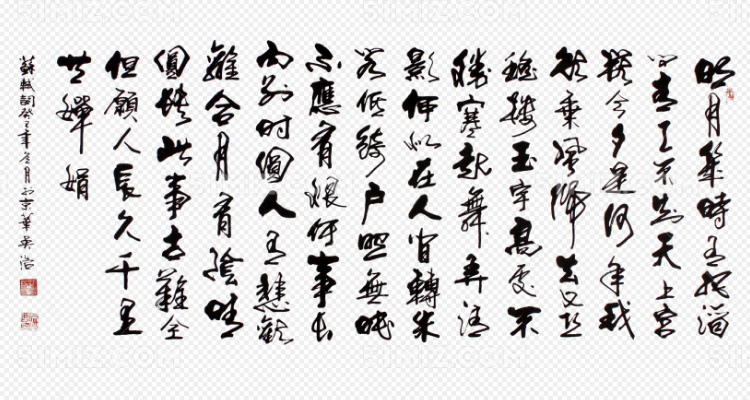 明月幾時有把酒
问青天不知天上宫
闕今夕是何年我
欲乘風歸去又恐
瓊樓玉宇高處不
勝寒起舞弄清
影何似在人間轉朱
阁低綺户照無眠
不應有恨何事長
向别時圓人有悲歡
離合月有陰晴
圓缺此事古難全
但願人長久千里
共嬋娟
蘇軾詞癸巳年冬月於京華
51miz.com